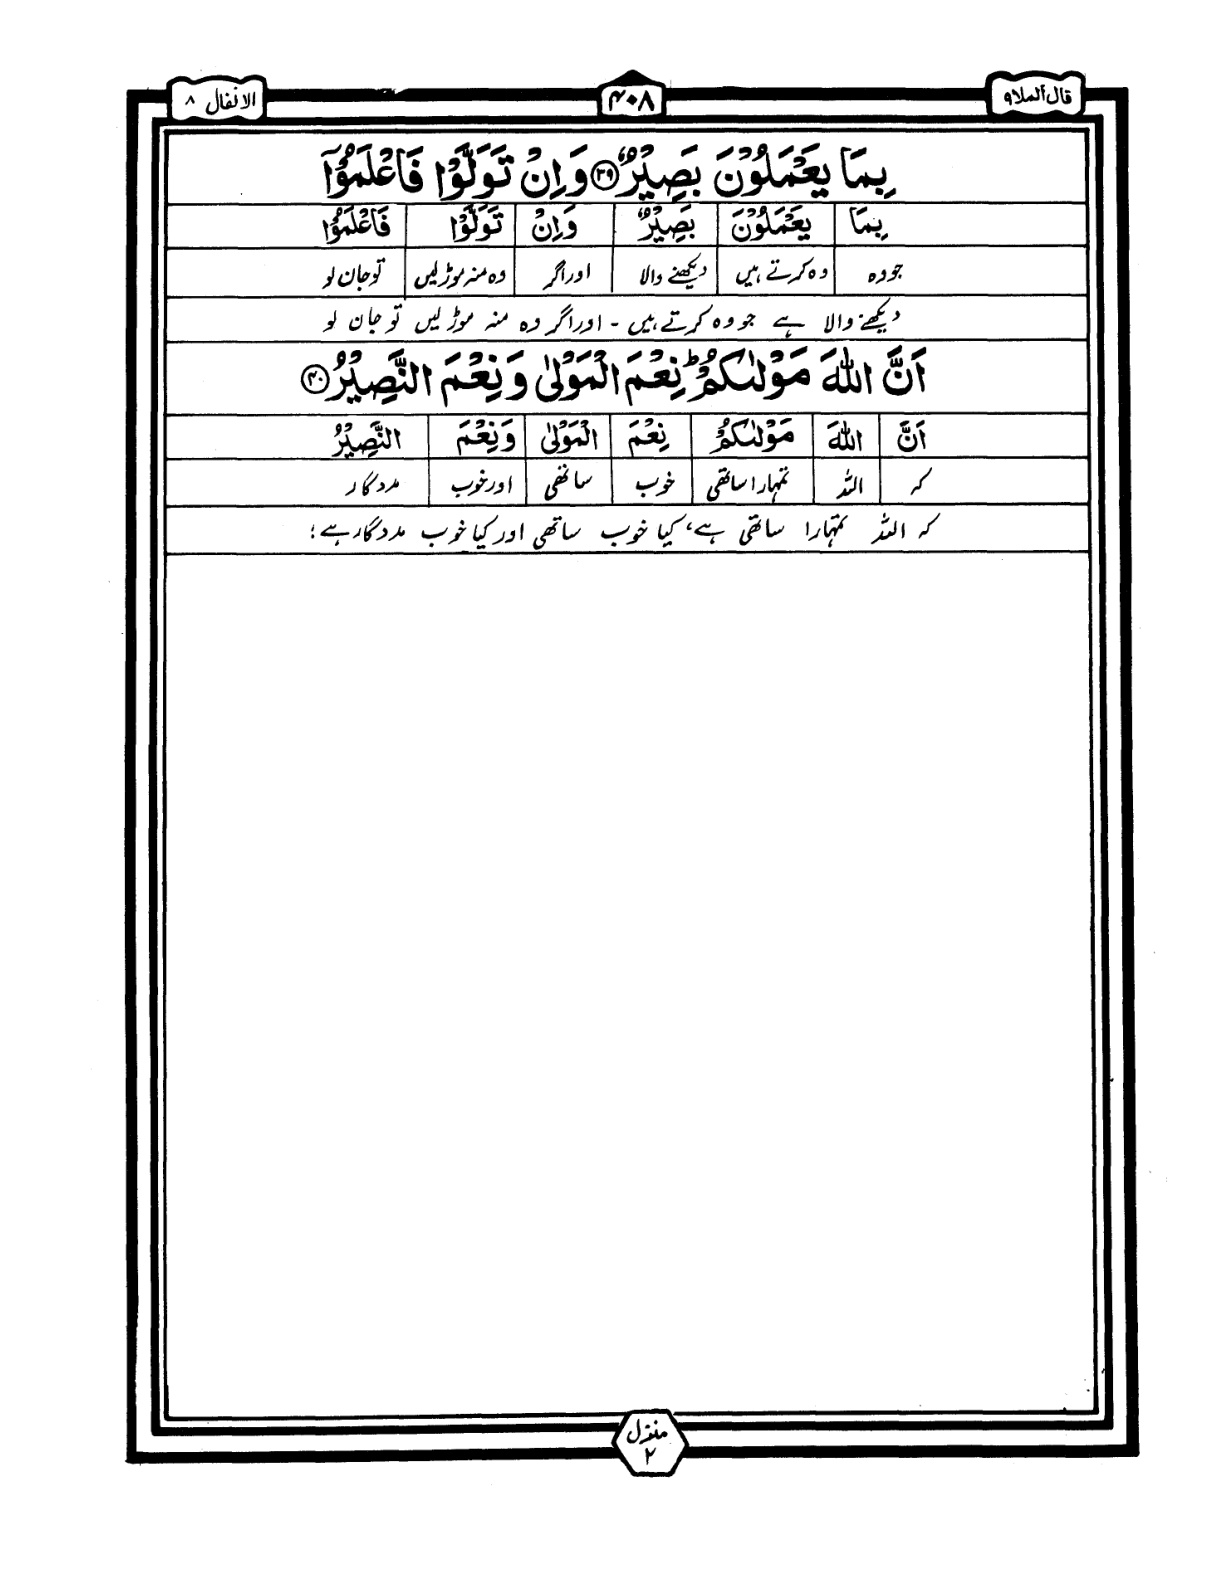 قال ألملا ۹
۴۰۸
الانفال ۸
بِمَا يَعْمَلُوْنَ بَصِيْرٌ ۳۹ وَاِنْ تَوَلَّوْا فَاعْلَمُوْۤا
بِمَا يَعْمَلُوْنَ بَصِيْرٌ وَاِنْ تَوَلَّوْا فَاعْلَمُوْۤا
جو وہ وہ کرتے ہیں دیکھنے والا اور اگر وہ منہ موڑ لیں تو جان لو
دیکھنے والا ہے جو وہ کرتے ہیں ۔ اور اگر وہ منہ موڑ لیں تو جان لو
اَنَّ اللّٰهَ مَوْلٰىكُمْ ؕ نِعْمَ الْمَوْلٰى وَنِعْمَ النَّصِيْرُ ۴۰
اَنَّ اللّٰهَ مَوْلٰىكُمْ نِعْمَ الْمَوْلٰى وَنِعْمَ النَّصِيْرُ
کہ اللہ تمہارا ساتھی خوب ساتھی اور خوب مددگار
کہ اللہ تمہارا ساتھی ہے، کیا خوب ساتھی اور کیا خوب مددگار ہے؛
منزل
۲